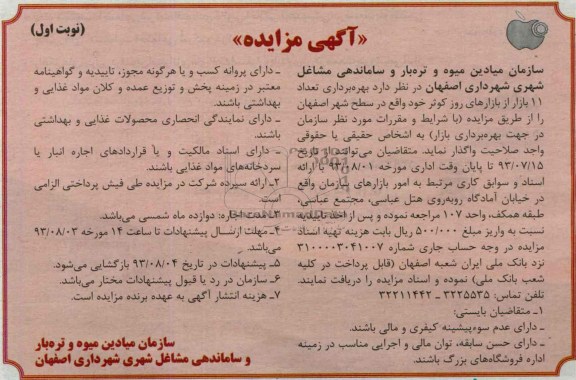 (نوبت اول)
«آگهی مزایده»
سازمان میادین میوه و تره‌بار و ساماندهی مشاغل
شهری شهرداری اصفهان در نظر دارد بهره‌برداری تعداد
۱۱ بازار از بازارهای روز کوثر خود واقع در سطح شهر اصفهان
را از طریق مزایده (با شرایط و مقررات مورد نظر سازمان
در جهت بهره‌برداری بازار) به اشخاص حقیقی یا حقوقی
واجد صلاحیت واگذار نماید. متقاضیان می‌توانند از تاریخ
۹۳/۰۷/۱۵ تا پایان وقت اداری مورخه ۹۳/۰۸/۰۱ با ارائه
اسناد و سوابق کاری مرتبط به امور بازارهای سازمان واقع
در خیابان آمادگاه روبه‌روی هتل عباسی، مجتمع عباسی،
طبقه همکف، واحد ۱۰۷ مراجعه نموده و پس از اخذ تأییدیه
نسبت به واریز مبلغ ۵۰۰/۰۰۰ ریال بابت هزینه تهیه اسناد
مزایده در وجه حساب جاری شماره ۳۱۰۰۰۰۳۰۴۱۰۰۷
نزد بانک ملی ایران شعبه اصفهان (قابل پرداخت در کلیه
شعب بانک ملی) نموده و اسناد مزایده را دریافت نمایند.
تلفن تماس: ۳۲۲۵۵۳۵ - ۳۲۲۱۱۴۴۲
۱ـ متقاضیان بایستی:
ـ دارای عدم سوءپیشینه کیفری و مالی باشند.
ـ دارای حسن سابقه، توان مالی و اجرایی مناسب در زمینه
اداره فروشگاه‌های بزرگ باشند.
ـ دارای پروانه کسب و یا هرگونه مجوز، تاییدیه و گواهینامه
معتبر در زمینه پخش و توزیع عمده و کلان مواد غذایی و
بهداشتی باشند.
ـ دارای نمایندگی انحصاری محصولات غذایی و بهداشتی
باشند.
ـ دارای اسناد مالکیت و یا قراردادهای اجاره انبار یا
سردخانه‌های مواد غذایی باشند.
۲ـ ارائه سپرده شرکت در مزایده طی فیش پرداختی الزامی
است.
۳ـ اجاره: دوازده ماه شمسی می‌باشد.
۴ـ مهلت ارسال پیشنهادات تا ساعت ۱۴ مورخه ۹۳/۰۸/۰۳
می‌باشد.
۵ـ پیشنهادات در تاریخ ۹۳/۰۸/۰۴ بازگشایی می‌شود.
۶ـ سازمان در رد یا قبول پیشنهادات مختار می‌باشد.
۷ـ هزینه انتشار آگهی به عهده برنده مزایده است.
سازمان میادین میوه و تره‌بار
و ساماندهی مشاغل شهری شهرداری اصفهان